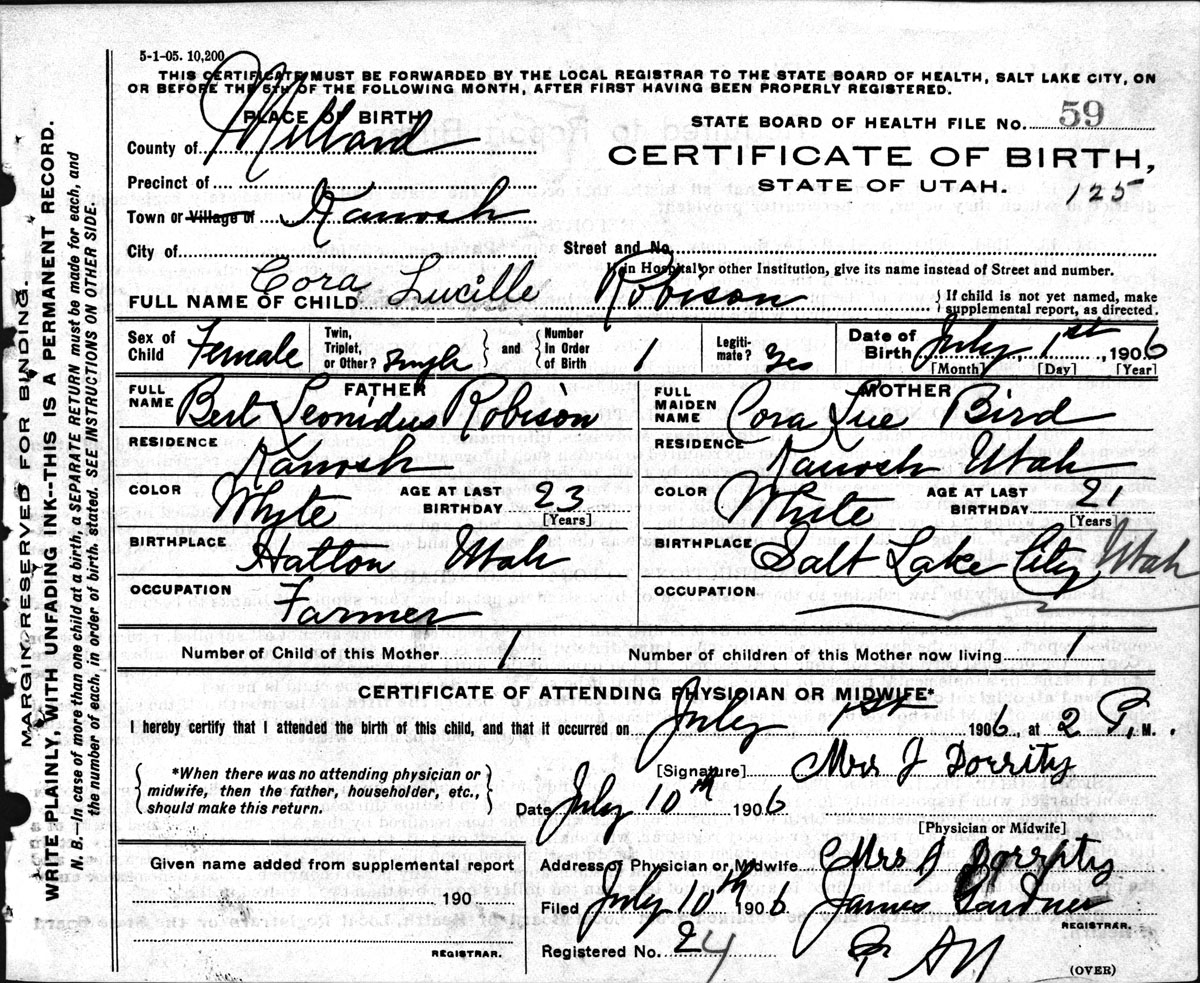 5-1-05. 10,200
THIS CERTIFICATE MUST BE FORWARDED BY THE LOCAL REGISTRAR TO THE STATE BOARD OF HEALTH, SALT LAKE CITY, ON
OR BEFORE THE 5TH OF THE FOLLOWING MONTH, AFTER FIRST HAVING BEEN PROPERLY REGISTERED.
PLACE OF BIRTH
STATE BOARD OF HEALTH FILE No. 59
County of Millard
CERTIFICATE OF BIRTH,
STATE OF UTAH.
125
Precinct of
Town or Village of Kanosh
City of
Street and No.
If in Hospital or other Institution, give its name instead of Street and number.
FULL NAME OF CHILD Cora Lucille Robison
If child is not yet named, make
supplemental report, as directed.
Sex of Child Female
Twin, Triplet, or Other? Single
and
Number In Order of Birth 1
Legiti-mate? Yes
Date of Birth July 1st, 1906
[Month] [Day] [Year]
FATHER
FULL NAME Bert Leonidus Robison
RESIDENCE Kanosh
COLOR Whyte
AGE AT LAST BIRTHDAY 23
[Years]
BIRTHPLACE Hatton Utah
OCCUPATION Farmer
MOTHER
FULL MAIDEN NAME Cora Lue Bird
RESIDENCE Kanosh Utah
COLOR White
AGE AT LAST BIRTHDAY 21
[Years]
BIRTHPLACE Salt Lake City Utah
OCCUPATION
Number of Child of this Mother 1
Number of children of this Mother now living 1
CERTIFICATE OF ATTENDING PHYSICIAN OR MIDWIFE*
I hereby certify that I attended the birth of this child, and that it occurred on July 1st 1906, at 2 P. M.
*When there was no attending physician or
midwife, then the father, householder, etc.,
should make this return.
[Signature] Mrs J Dorrity
Date July 10th 1906
[Physician or Midwife]
Given name added from supplemental report
190
REGISTRAR.
Address of Physician or Midwife Mrs J Dorrity
Filed July 10th 1906 James Gardner
REGISTRAR.
Registered No. 24
(OVER)
MARGIN RESERVED FOR BINDING.
WRITE PLAINLY, WITH UNFADING INK--THIS IS A PERMANENT RECORD.
N. B.—In case of more than one child at a birth, a SEPARATE RETURN must be made for each, and
the number of each, in order of birth, stated. SEE INSTRUCTIONS ON OTHER SIDE.